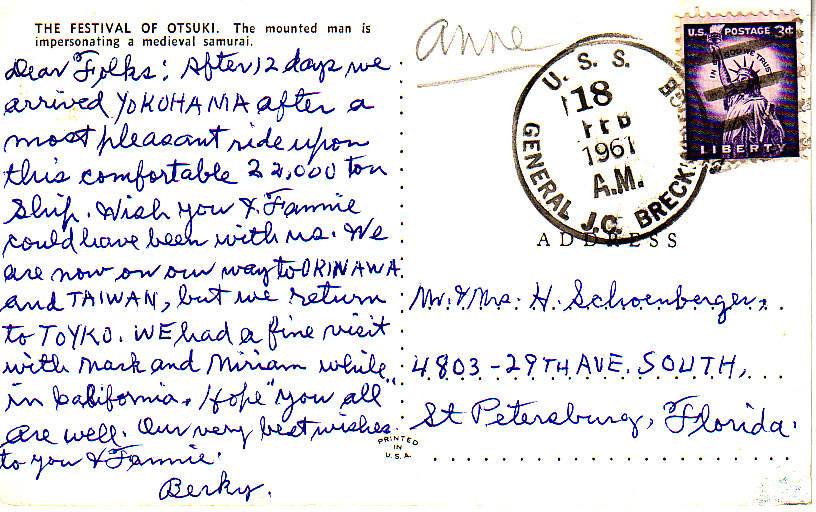 THE FESTIVAL OF OTSUKI. The mounted man is
impersonating a medieval samurai.
Dear Folks: After 12 days we
arrived YOKOHAMA after a
most pleasant ride upon
this comfortable 22,000 ton
ship. Wish you & Fannie
could have been with us. We
are now on our way to OKINAWA
and TAIWAN, but we return
to TOYKO. WE had a fine visit
with Mark and Miriam while
in California. Hope "you all"
are well. Our very best wishes
to you & Fannie.
Berky.
Anne
U.S.S.
GENERAL J.C. BRECKIN
18
FEB
1961
A.M.
U.S. POSTAGE 3¢
IN GOD WE TRUST
LIBERTY
ADDRESS
Mr. & Mrs. H. Schoenberger,
4803-29TH AVE. SOUTH,
St Petersburg, Florida.
PRINTED
IN
U.S.A.